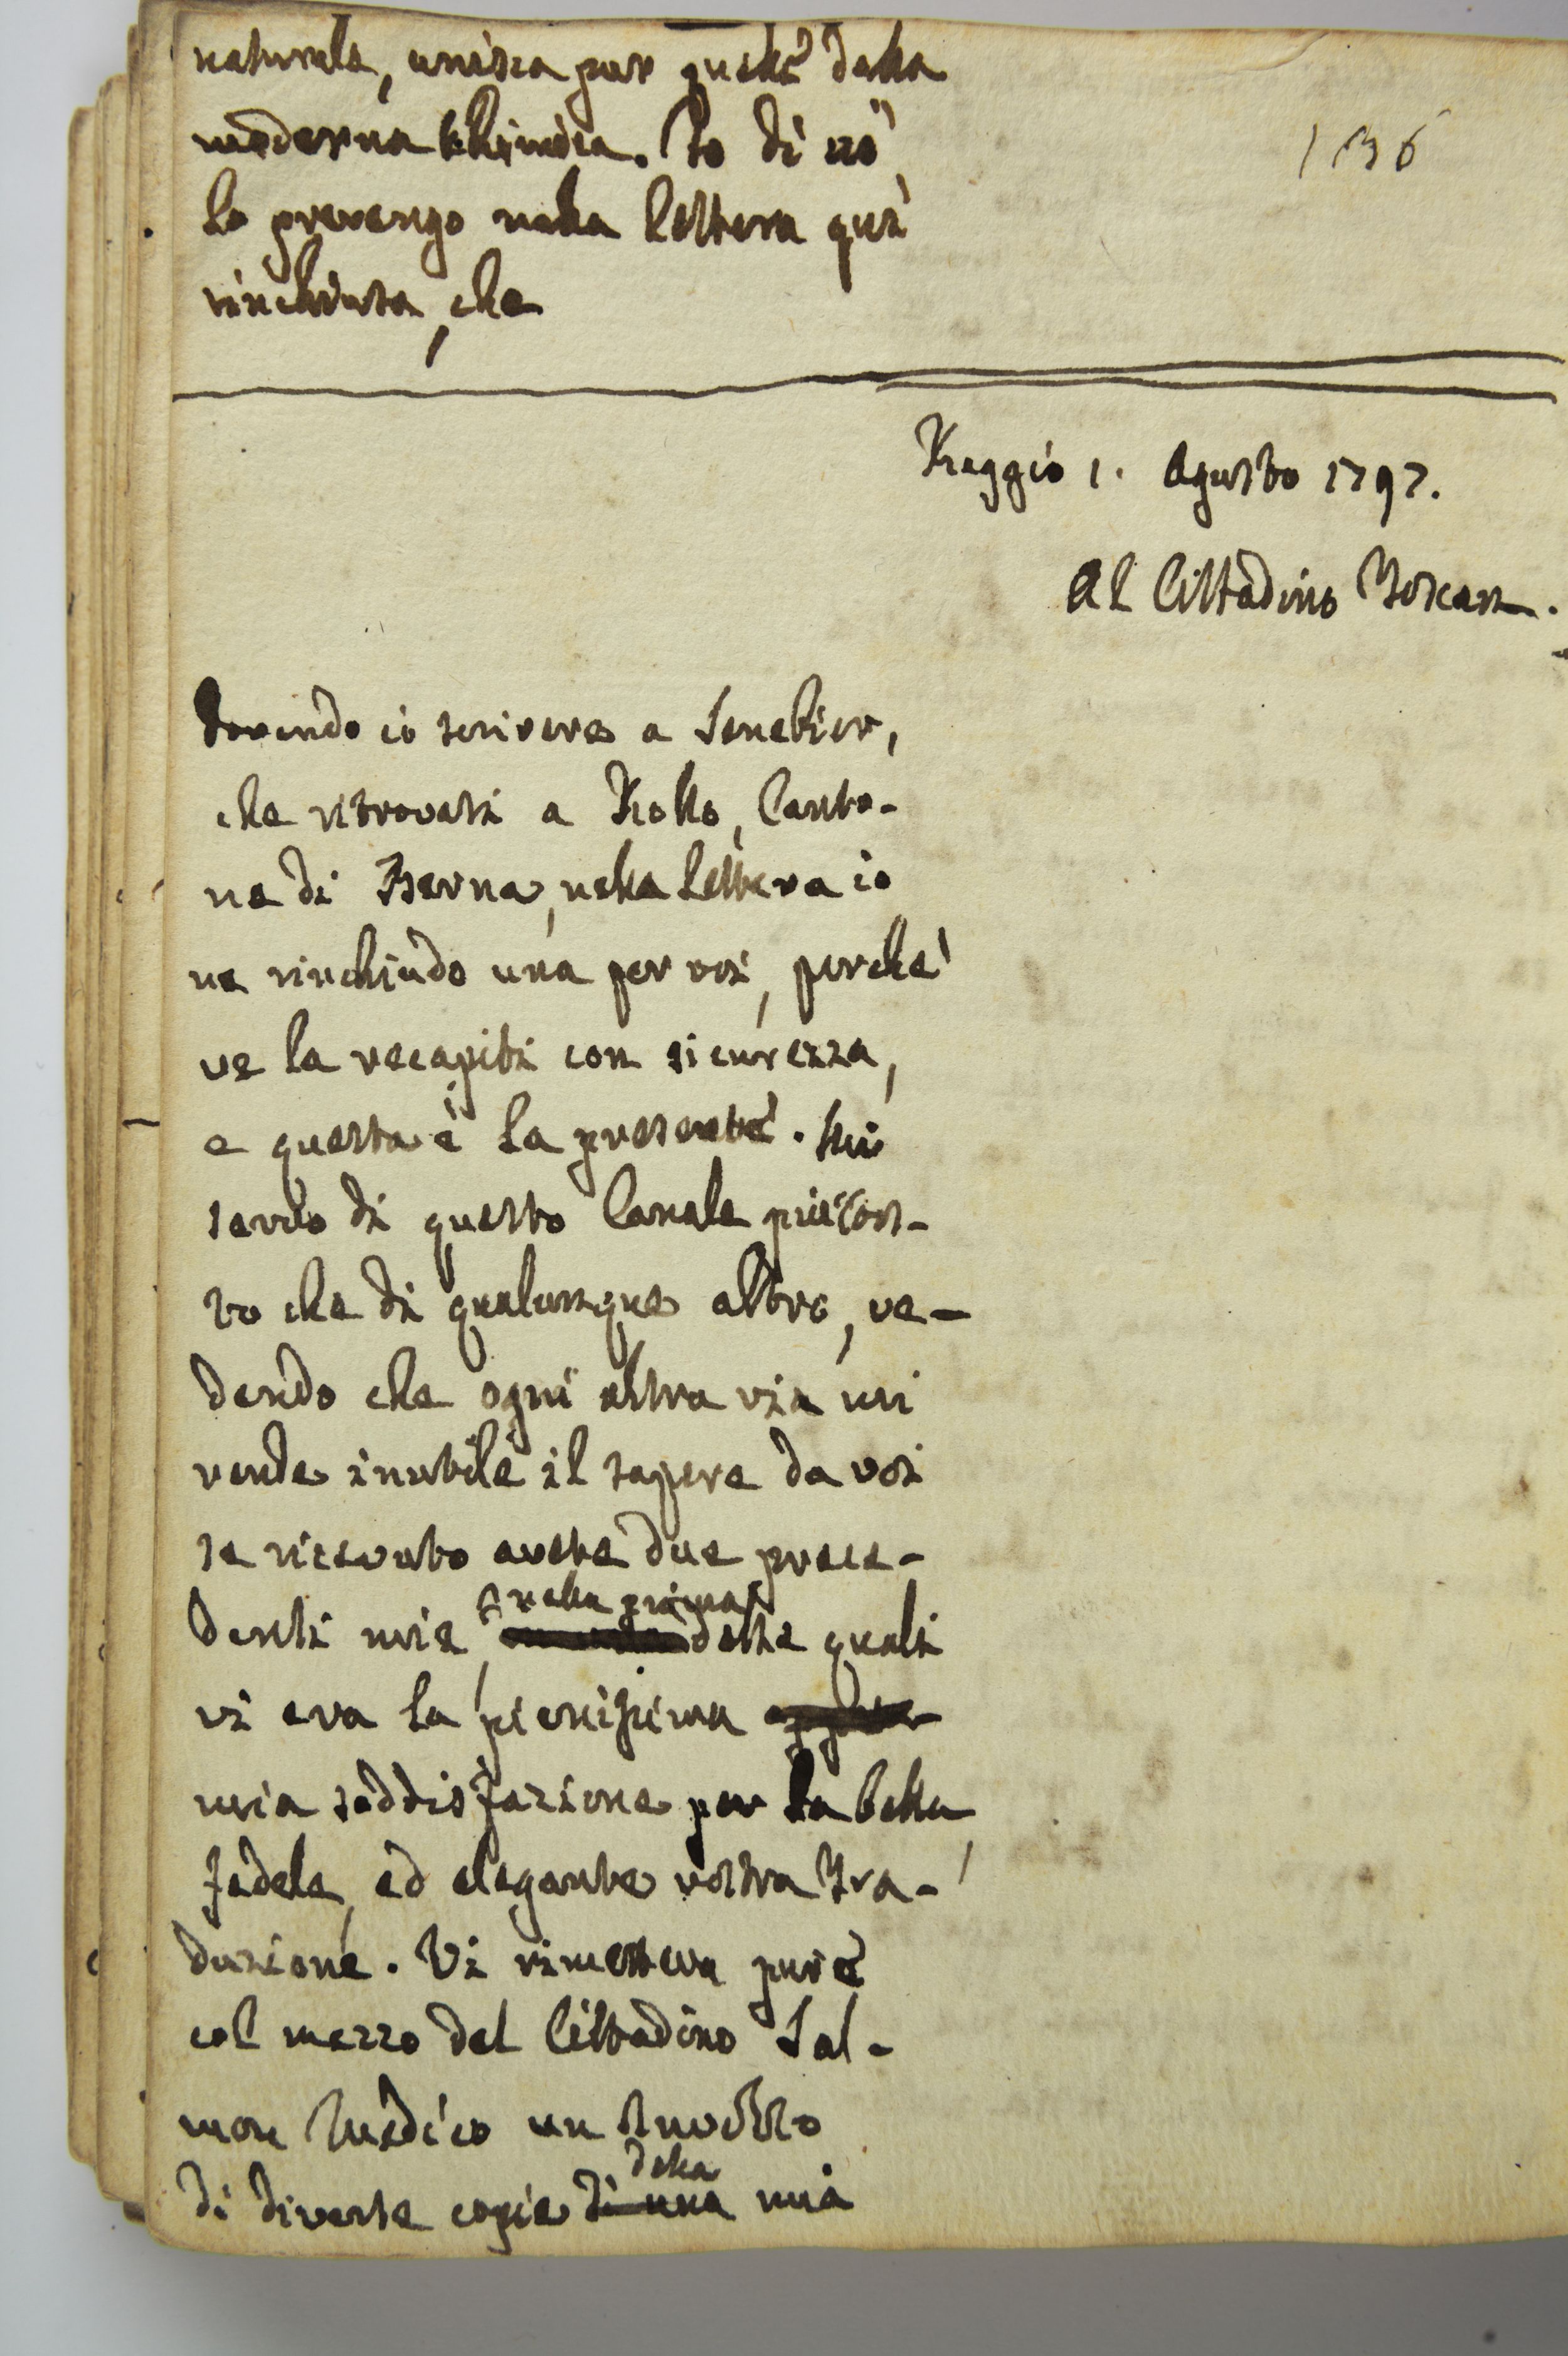 naturale, unisca pur quelle della
moderna Chimica. Io di ciò
lo prevengo nella lettera quì
rinchiusa, che
136
Reggio 1. Agosto 1797.
Al Cittadino Toscan.
Dovendo io scrivere a Senebier,
che ritrovasi a Rollo, Canto-
ne di Berna, nella lettera io
ne rinchiudo una per voi, perchè
ve la recapiti con sicurezza,
e questa è la presente. Mi
servo di questo Canale piùtos-
to che di qualunque altro, ve-
dendo che ogni altra via mi
rende inutile il sapere da voi
se ricevuto avete due prece-
denti mie, nella prima delle quali
vi era la pienissima
mia soddisfazione per la bella,
fedele, ed elegante vostra Tra-
duzione. Vi rimetteva pure
col mezzo del Cittadino Sal-
mon Medico un
di diverse copie di una della mia